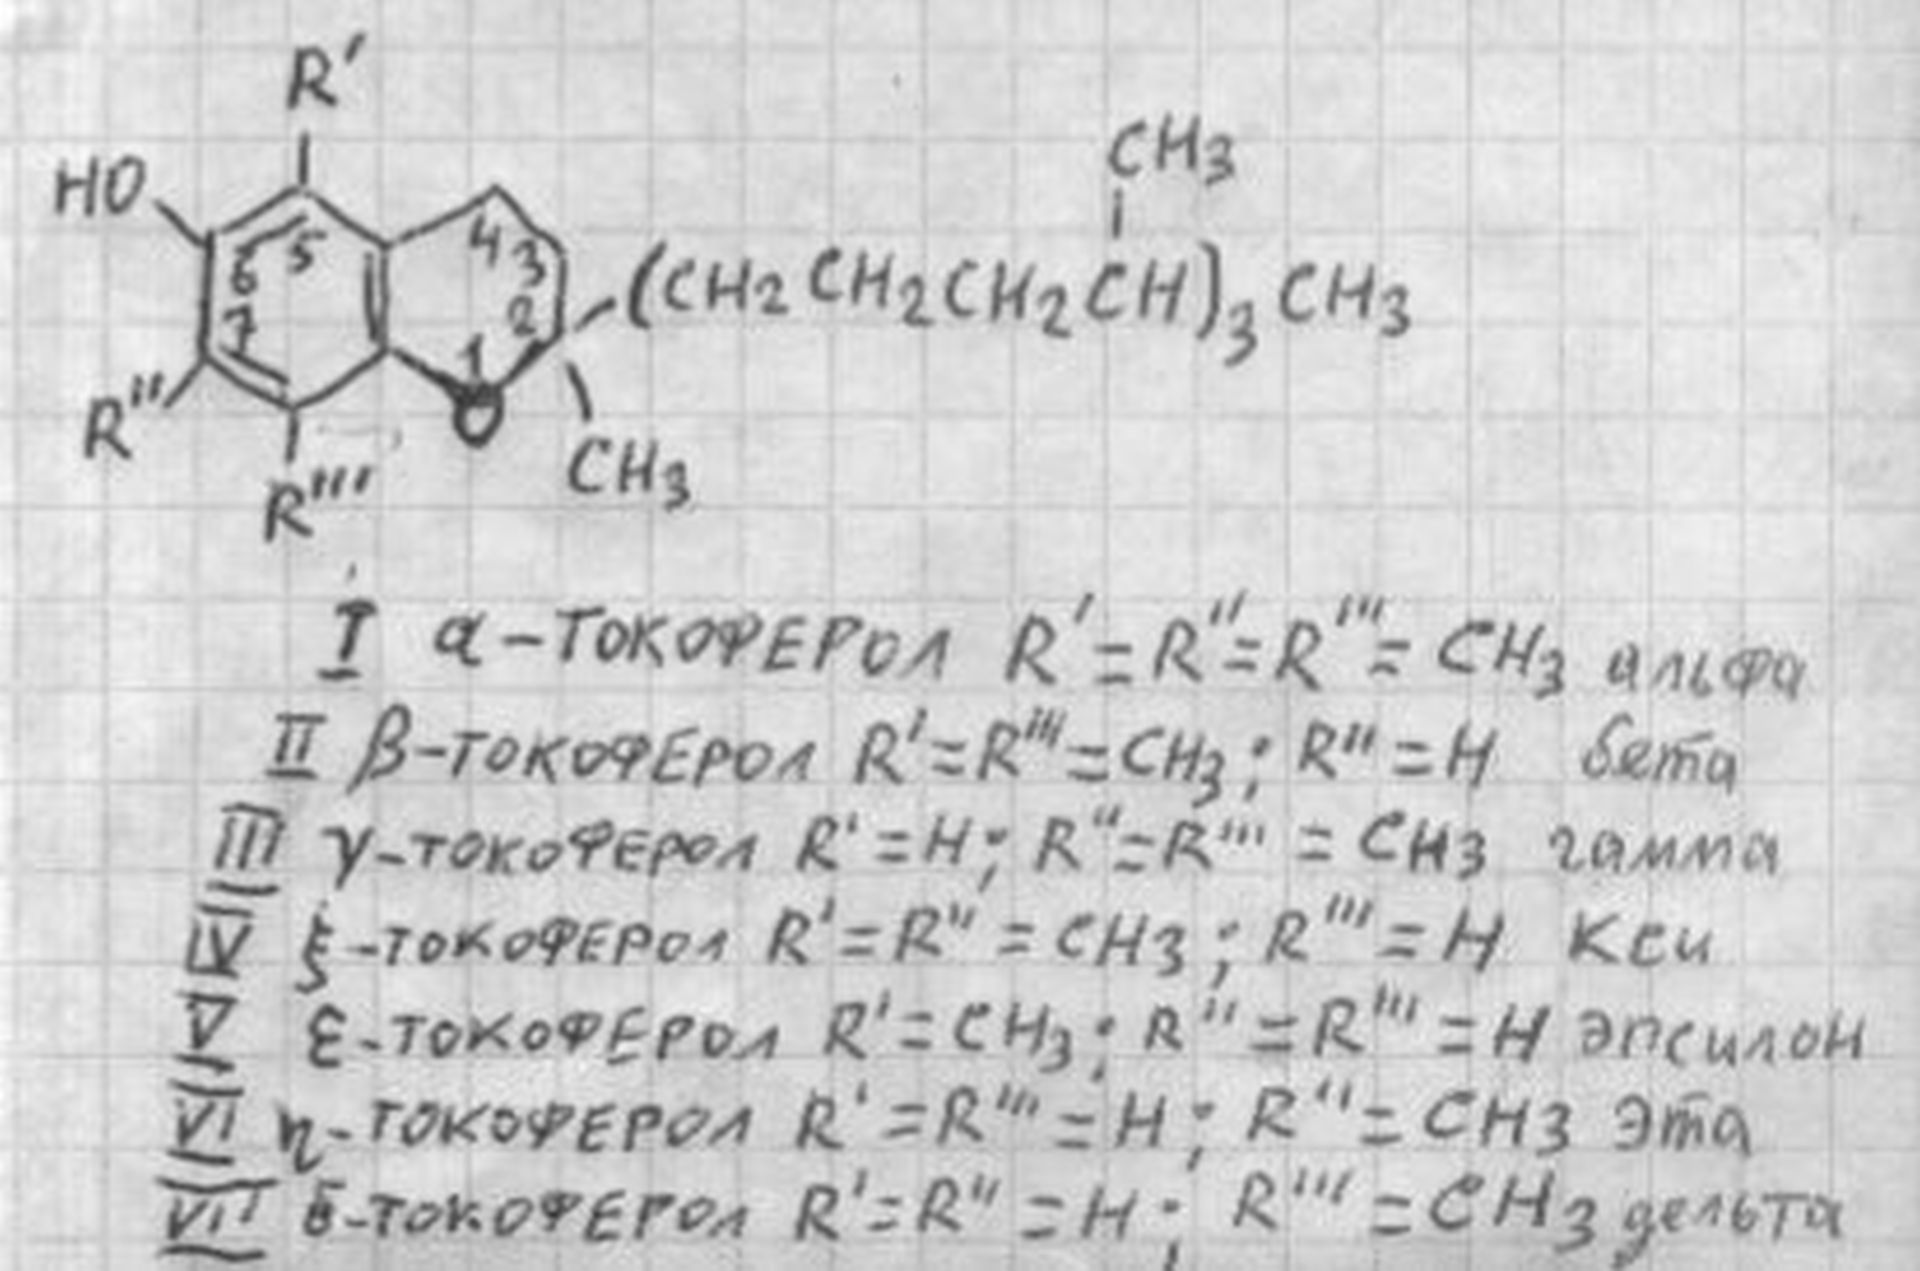 R'
HO
CH3
6 5 4 3
7 1 2
(CH2CH2CH2CH)3CH3
R''
O
CH3
R'''
I α-ТОКОФЕРОЛ R'=R''=R'''=CH3 альфа
II β-ТОКОФЕРОЛ R'=R'''=CH3; R''=H бета
III γ-ТОКОФЕРОЛ R'=H; R''=R'''=CH3 гамма
IV ξ-ТОКОФЕРОЛ R'=R''=CH3; R'''=H Кси
V ε-ТОКОФЕРОЛ R'=CH3; R''=R'''=H эпсилон
VI η-ТОКОФЕРОЛ R'=R'''=H; R''=CH3 эта
VII δ-ТОКОФЕРОЛ R'=R''=H; R'''=CH3 дельта